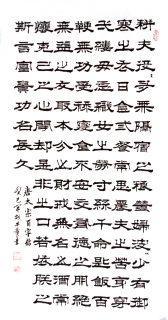 耕夫役役多無隔宿之糧織婦波波少有御
寒之衣日食三餐當思農夫之苦身穿
一縷每念織女之勞寸絲千命匙飯百
鞭無功受祿寢食不安交有德之朋絕
無益之友取本分之財戒無名之酒常
懷克己之心閉却是非之口若依朕之
斯言富貴功名長久
唐太宗百字銘
癸巳年